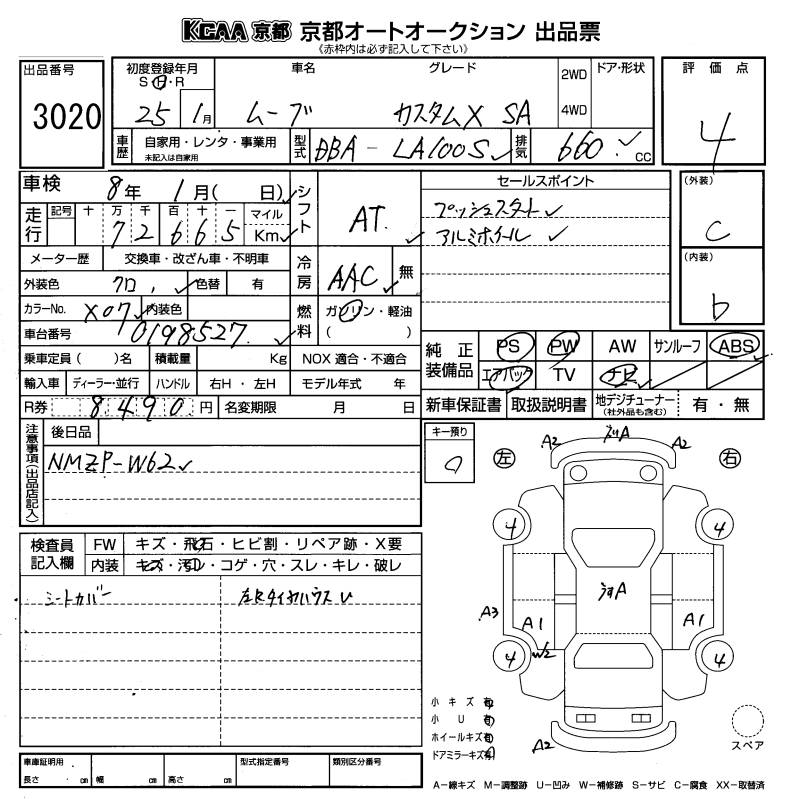 KCAA 京都 京都オートオークション 出品票
《赤枠内は必ず記入して下さい》
出品番号
3020
初度登録年月
S・H・R
25 1月
車名
ムーブ
グレード
カスタムX SA
2WD
4WD
ドア・形状
評価点
4
車歴
自家用・レンタ・事業用
未記入は自家用
型式
DBA-LA100S
排気
660 cc
車検
8年 1月( 日)
シフト
AT
セールスポイント
プッシュスタート
アルミホイール
(外装)
C
(内装)
b
走行
記号 十 万 千 百 十 一 マイル
7 2 6 6 5 Km
メーター歴 交換車・改ざん車・不明車
冷房
AAC 無
外装色 クロ 色替 有
カラーNo. X07 内装色
燃料
ガソリン・軽油
( )
車台番号 0198527
乗車定員( )名 積載量 Kg NOX 適合・不適合
輸入車 ディーラー・並行 ハンドル 右H・左H モデル年式 年
R券 8490円 名変期限 月 日
純正装備品
PS PW AW サンルーフ ABS
エアバック TV ナビ
新車保証書 取扱説明書 地デジチューナー(社外品も含む) 有・無
注意事項(出品店記入)
後日品
NMZP-W62
キー預り
左
右
A2
A2
検査員記入欄
FW キズ・飛石・ヒビ割・リペア跡・X要
内装 キズ・汚レ・コゲ・穴・スレ・キレ・破レ
シートカバー
左RタイヤハウスU
4
4
うすA
A3
A1
A1
4
W2
4
A2
小キズ 有
小U 有
ホイールキズ 有
ドアミラーキズ 有
スペア
車庫証明用
長さ cm 幅 cm 高さ cm
型式指定番号
類別区分番号
A-線キズ M-調整跡 U-凹み W-補修跡 S-サビ C-腐食 XX-取替済